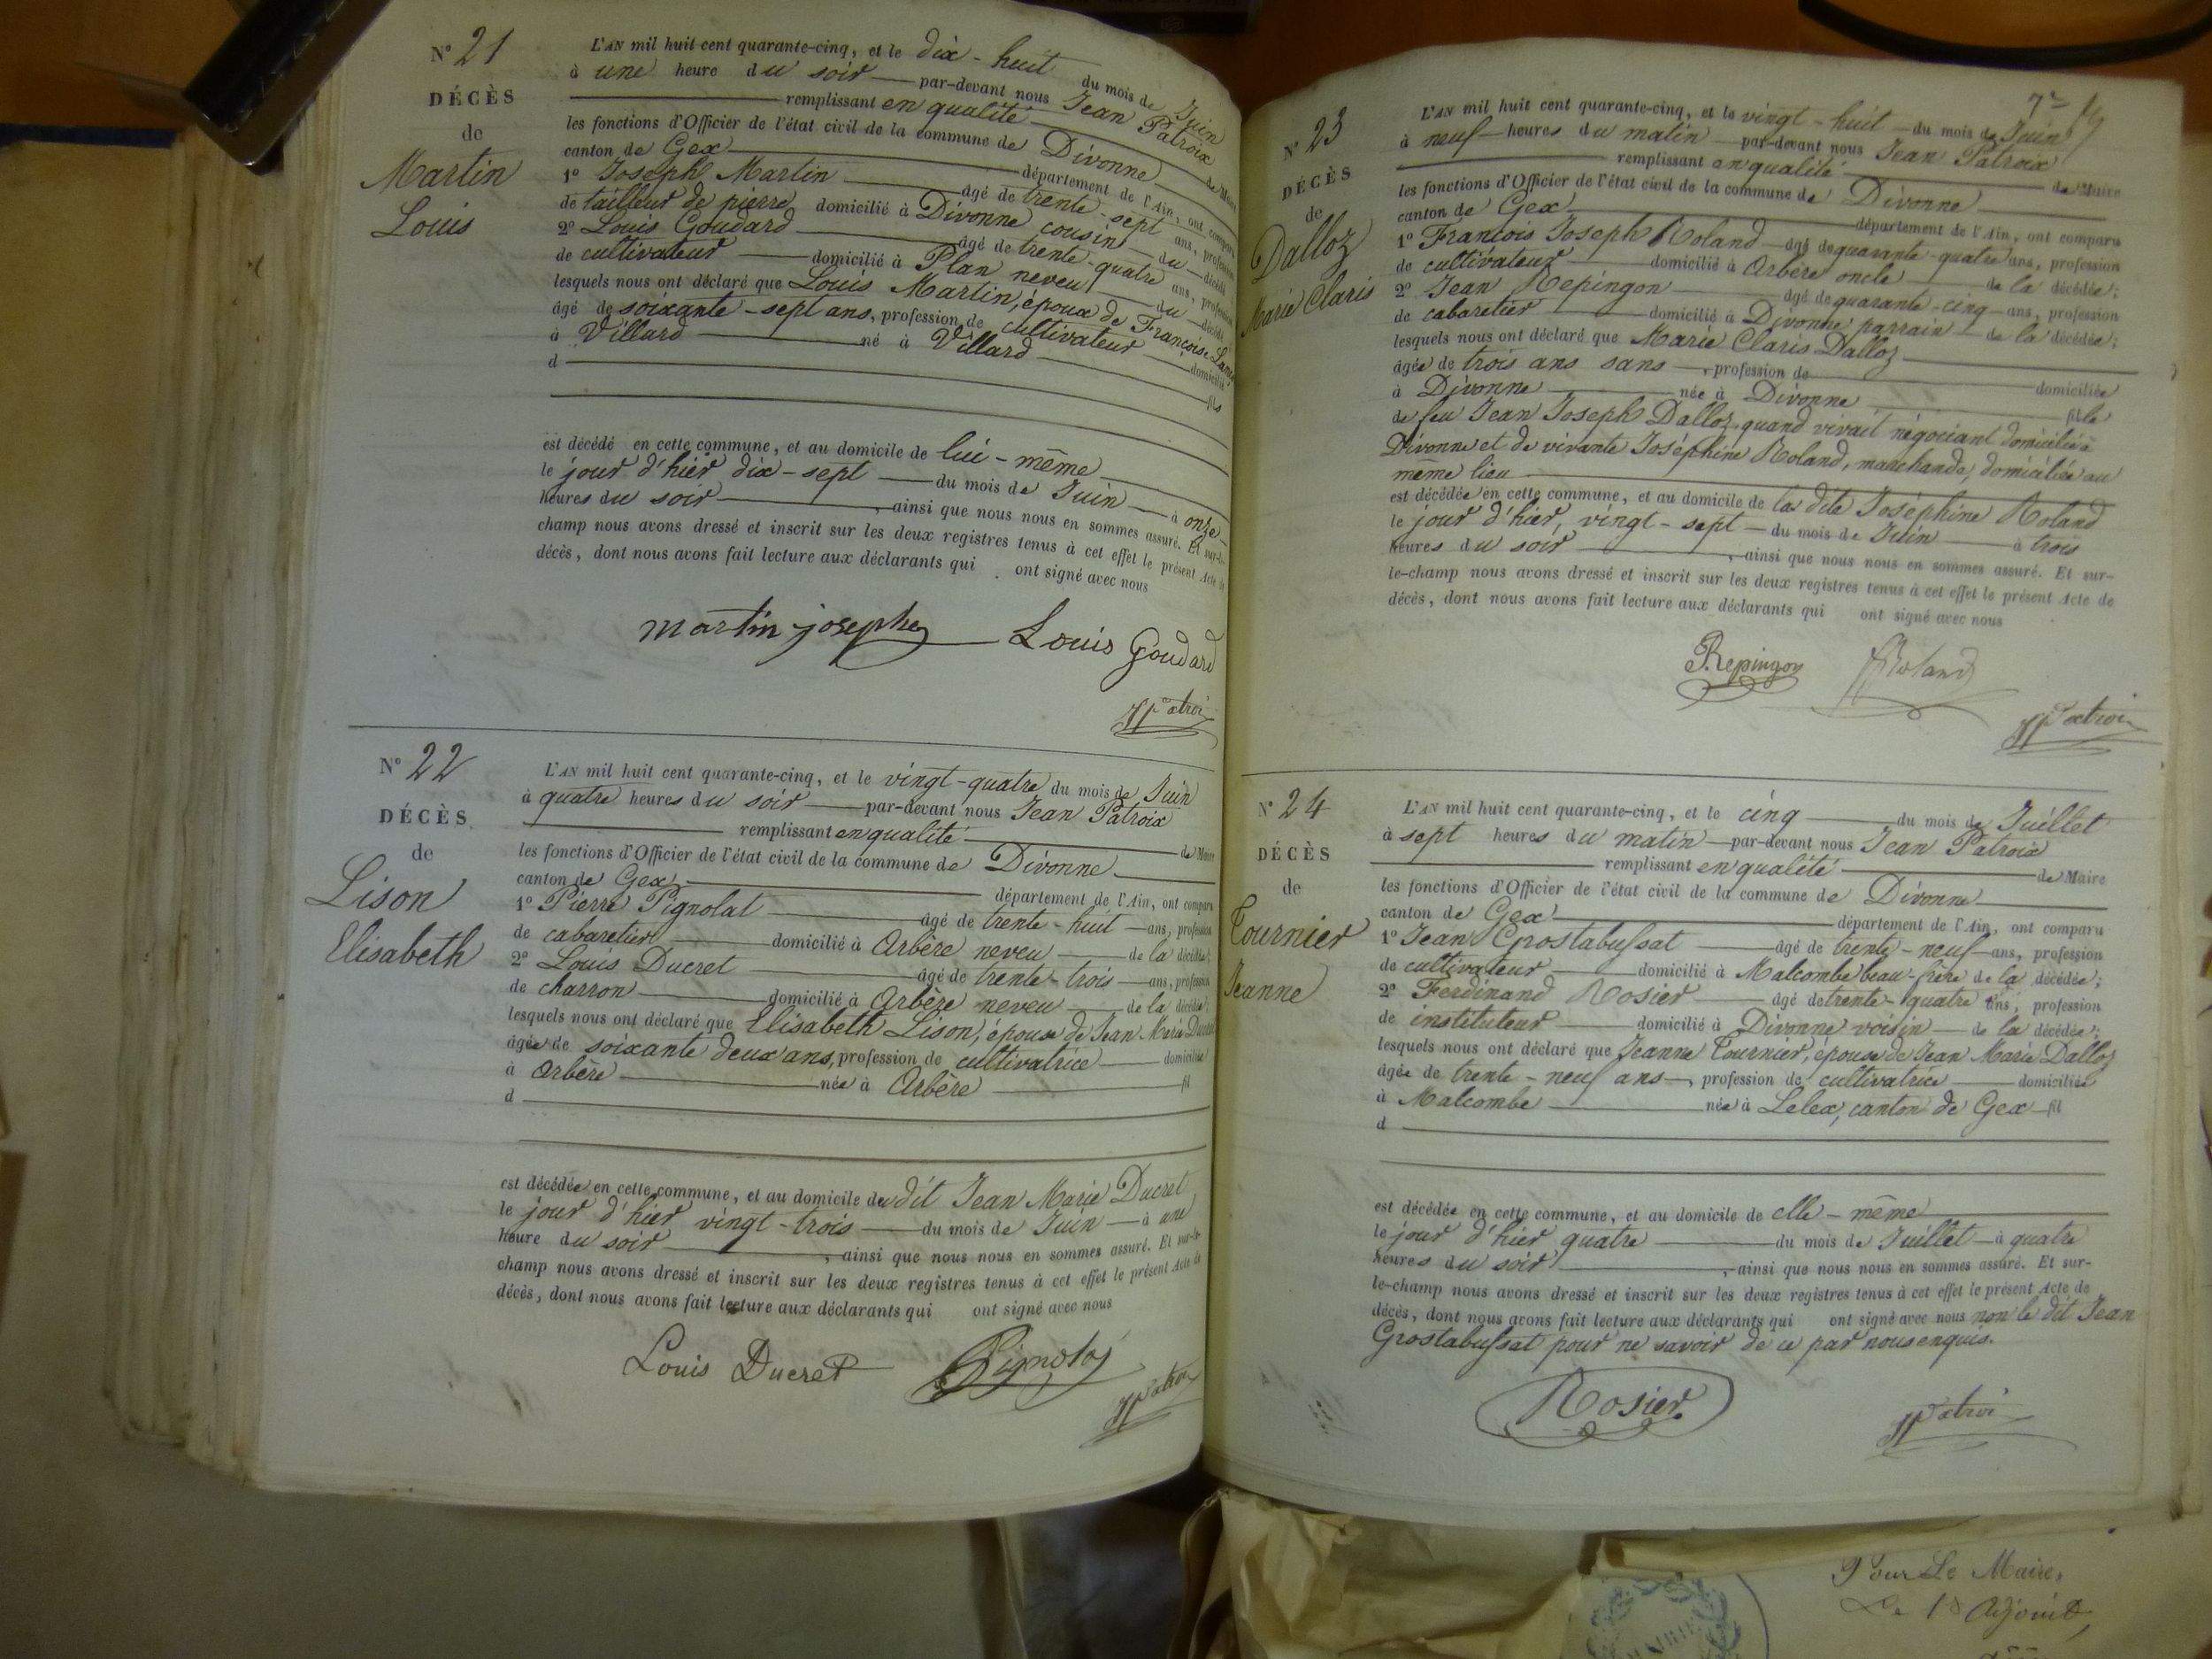 N° 21
DÉCÈS
de
Martin
Louis
L'AN mil huit cent quarante-cinq, et le dix-huit du mois de Juin
à une heure du soir par-devant nous Jean Patroix
remplissant en qualité de Maire
les fonctions d'Officier de l'état civil de la commune de Divonne
canton de Gex département de l'Ain, ont comparu
1° Joseph Martin âgé de trente-sept ans, profession
de tailleur de pierre domicilié à Divonne cousin du décédé
2° Louis Goudard âgé de trente-quatre ans, profession
de cultivateur domicilié à Plan neveu du décédé
lesquels nous ont déclaré que Louis Martin, époux de Françoise
âgé de soixante-sept ans, profession de cultivateur domicilié
à Villard né à Villard fils
d
est décédé en cette commune, et au domicile de lui-même
le jour d'hier dix-sept du mois de Juin à onze
heures du soir, ainsi que nous nous en sommes assuré. Et sur-le-
champ nous avons dressé et inscrit sur les deux registres tenus à cet effet le présent Acte de
décès, dont nous avons fait lecture aux déclarants qui ont signé avec nous
martin josephe Louis Goudard
JPatroi
N° 22
DÉCÈS
de
Lison
Elisabeth
L'AN mil huit cent quarante-cinq, et le vingt-quatre du mois de Juin
à quatre heures du soir par-devant nous Jean Patroix
remplissant en qualité de Maire
les fonctions d'Officier de l'état civil de la commune de Divonne
canton de Gex département de l'Ain, ont comparu
1° Pierre Pignolat âgé de trente-huit ans, profession
de cabaretier domicilié à Arbère neveu de la décédée;
2° Louis Ducret âgé de trente-trois ans, profession
de charron domicilié à Arbère neveu de la décédée;
lesquels nous ont déclaré que Elisabeth Lison, épouse de Jean Marie Ducret
âgée de soixante deux ans, profession de cultivatrice domiciliée
à Arbère née à Arbère fil
d
est décédée en cette commune, et au domicile du dit Jean Marie Ducret
le jour d'hier vingt-trois du mois de Juin à une
heure du soir, ainsi que nous nous en sommes assuré. Et sur-le-
champ nous avons dressé et inscrit sur les deux registres tenus à cet effet le présent Acte de
décès, dont nous avons fait lecture aux déclarants qui ont signé avec nous
Louis Ducret Pignolat
JPatroi
7
N° 23
DÉCÈS
de
Dalloz
Marie Claris
L'AN mil huit cent quarante-cinq, et le vingt-huit du mois de Juin
à neuf heures du matin par-devant nous Jean Patroix
remplissant en qualité de Maire
les fonctions d'Officier de l'état civil de la commune de Divonne
canton de Gex département de l'Ain, ont comparu
1° François Joseph Roland âgé de quarante-quatre ans, profession
de cultivateur domicilié à Arbère oncle de la décédée;
2° Jean Repingon âgé de quarante-cinq ans, profession
de cabaretier domicilié à Divonne parrain de la décédée;
lesquels nous ont déclaré que Marie Claris Dalloz
âgée de trois ans sans, profession de domiciliée
à Divonne née à Divonne fille
de feu Jean Joseph Dalloz quand vivait négociant domicilié à
Divonne et de vivante Joséphine Roland, marchande, domiciliée au
meme lieu
est décédée en cette commune, et au domicile de la dite Joséphine Roland
le jour d'hier, vingt-sept du mois de Juin à trois
heures du soir, ainsi que nous nous en sommes assuré. Et sur-
le-champ nous avons dressé et inscrit sur les deux registres tenus à cet effet le présent Acte de
décès, dont nous avons fait lecture aux déclarants qui ont signé avec nous
Repingon Roland
JPatroi
N° 24
DÉCÈS
de
Tournier
Jeanne
L'AN mil huit cent quarante-cinq, et le cinq du mois de Juillet
à sept heures du matin par-devant nous Jean Patroix
remplissant en qualité de Maire
les fonctions d'Officier de l'état civil de la commune de Divonne
canton de Gex département de l'Ain, ont comparu
1° Jean Grostabussat âgé de trente-neuf ans, profession
de cultivateur domicilié à Malcombe beau-frère de la décédée;
2° Ferdinand Rosier âgé de trente-quatre ans, profession
de instituteur domicilié à Divonne voisin de la décédée;
lesquels nous ont déclaré que Jeanne Tournier, épouse de Jean Marie Dalloz
âgée de trente-neuf ans, profession de cultivatrice domiciliée
à Malcombe née à Lelex, canton de Gex fil
d
est décédée en cette commune, et au domicile de elle-même
le jour d'hier quatre du mois de Juillet à quatre
heures du soir, ainsi que nous nous en sommes assuré. Et sur-
le-champ nous avons dressé et inscrit sur les deux registres tenus à cet effet le présent Acte de
décès, dont nous avons fait lecture aux déclarants qui ont signé avec nous non le dit Jean
Grostabussat pour ne savoir de ce par nous enquis.
Rosier
JPatroi
Pour Le Maire,
Le 1er Adjoint,